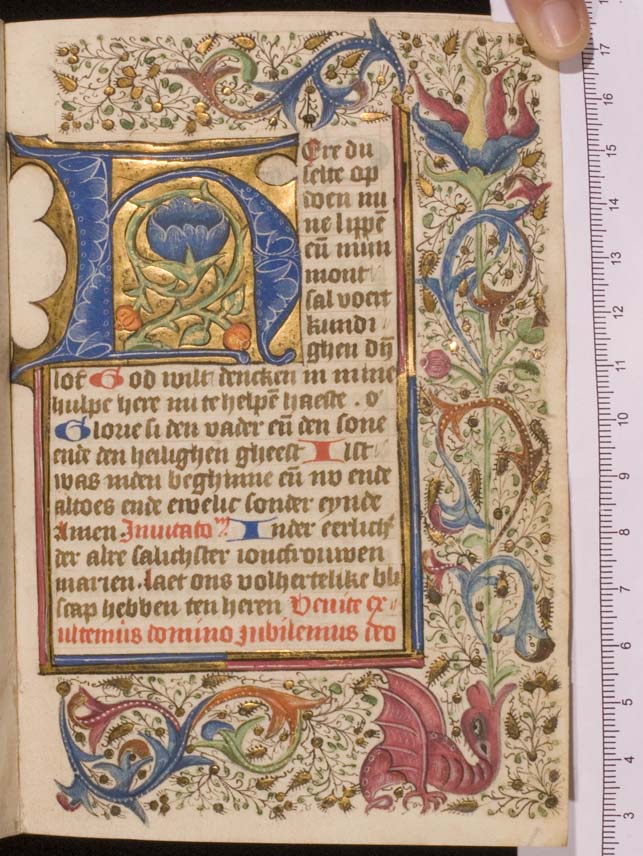 HEre du
selte op
doen mi
ne lippē
eñ mijn
mont
sal voert
kundi
ghen dijn
lof God wilt dencken in mine
hulpe here mi te helpē haeste . o'
Glorie si den vader eñ den sone
ende den heilighen gheest Alst
was inden beghinne eñ nv ende
altoes ende ewelic sonder eynde
Amen . Inuitato Inder eerlich
der alre salichster ioncfrouwen
marien . laet ons volhertelike bli
scap hebben ten heren Venite ex
ultemus domino Jubilemus deo
17
16
15
14
13
12
11
10
9
8
7
6
5
4
3